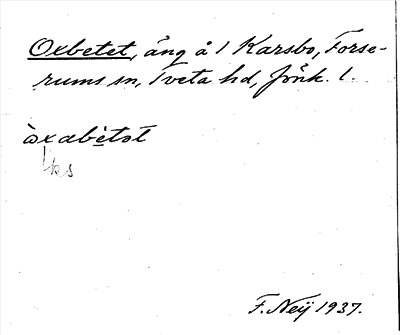 Oxbetet, äng å 1 Karsbo, Forse-
rums sn, Tveta hd, Jönk. l.
òxabètət
ks
F. Neÿ 1937.